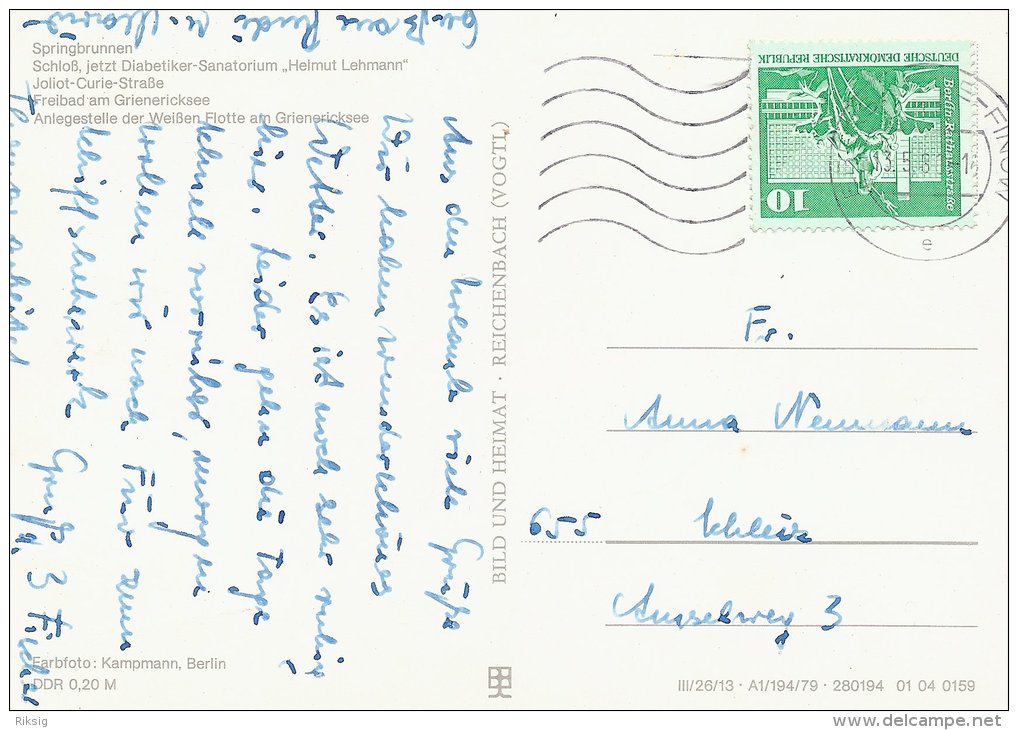 Springbrunnen
Schloß, jetzt Diabetiker-Sanatorium „Helmut Lehmann“
Joliot-Curie-Straße
Freibad am Grienericksee
Anlegestelle der Weißen Flotte am Grienericksee
Aus dem Urlaub viele Grüße
Wir haben wunderschönes
Wetter. Es ist noch sehr ruhig
hier. Leider gehn die Tage
schnell vorüber, morgen
wollen wir nach zum
Schiffshebewerk Gruß
Farbfoto: Kampmann, Berlin
DDR 0,20 M
BILD UND HEIMAT · REICHENBACH (VOGTL)
DEUTSCHE DEMOKRATISCHE REPUBLIK
10
e
Fr.
Anna Neumann
655 Schleiz
Amselweg 3
III/26/13 · A1/194/79 · 280194 01 04 0159
Riksig
www.delcampe.net